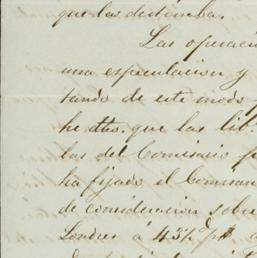 que las distinba.
Las operaci
una especulacion y
tando de este modo
he dho. que las lib
las del Comisario
ha fijado el Comisar
de consideracion sobre
Londres á 43½ p%